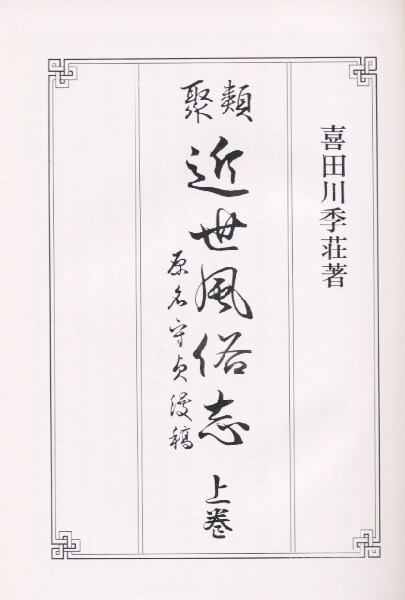 喜田川季荘著
類聚
近世風俗志
原名守貞漫稿
上巻